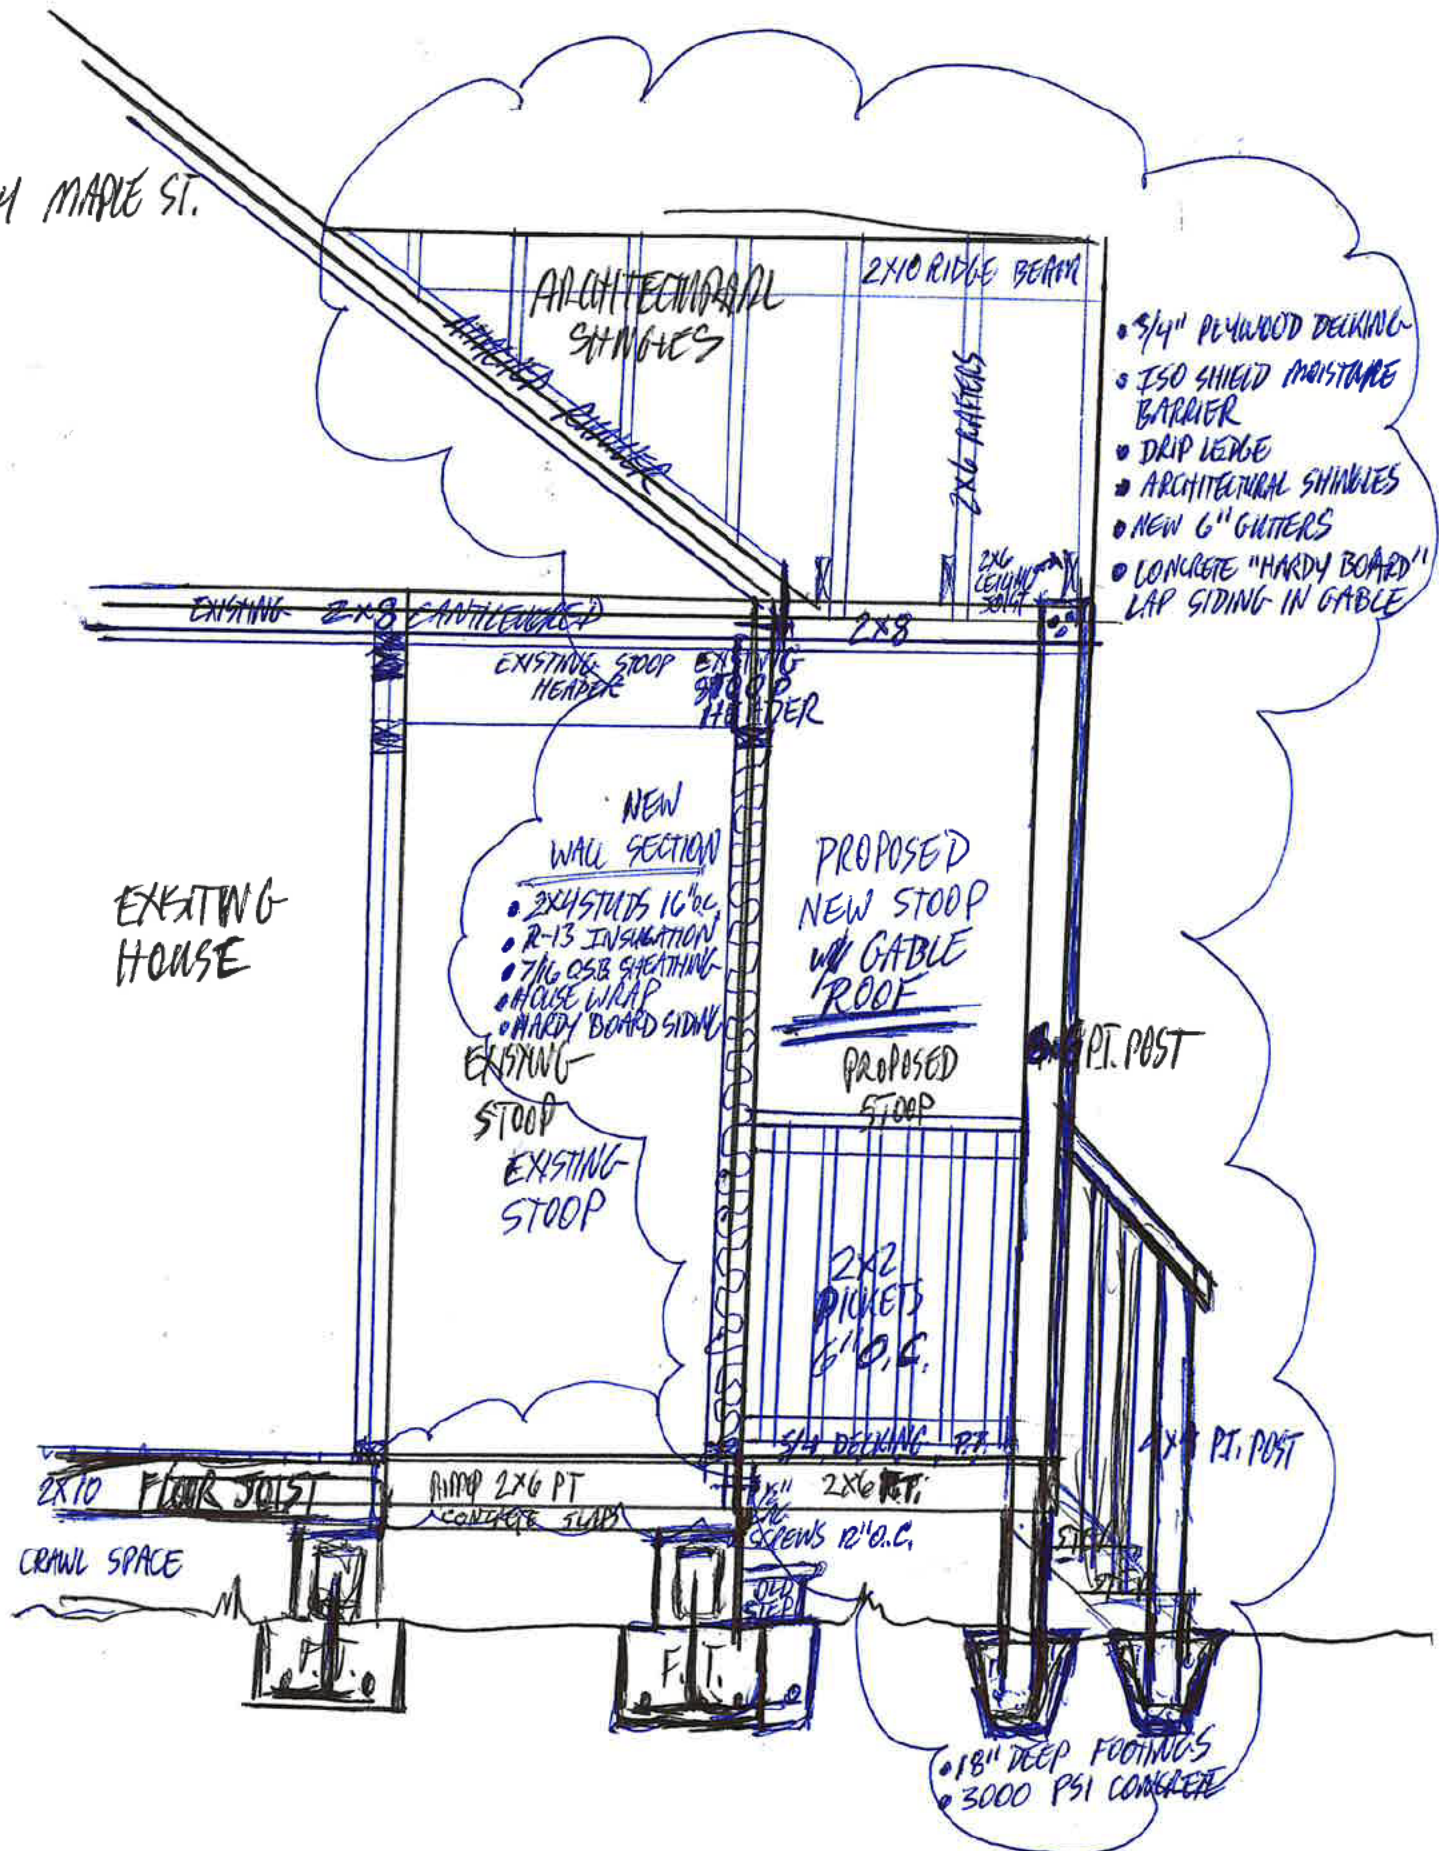 MAPLE ST.
ARCHITECTURARL
SHINGLES
2X10 RIDGE BEAM
2X6 RAFTERS
• 3/4" PLYWOOD DECKING
• ISO SHIELD MOISTURE
BARRIER
• DRIP LEDGE
• ARCHITECTURAL SHINGLES
• NEW 6" GUTTERS
• CONCRETE "HARDY BOARD"
LAP SIDING IN GABLE
2X6
CEILING
JOIST
EXISTING 2X8 CANTILEVERED
2X8
EXISTING STOOP
HEADER
EXISTING
STOOP
HEADER
NEW
WALL SECTION
• 2X4 STUDS 16" O.C.
• R-13 INSULATION
• 7/16 OSB SHEATHING
• HOUSE WRAP
• HARDY BOARD SIDING
EXISTING
STOOP
EXISTING
STOOP
EXSITING
HOUSE
PROPOSED
NEW STOOP
W/ GABLE
ROOF
PROPOSED
STOOP
P.T. POST
2X2
PICKETS
6" O.C.
5/4 DECKING P.T.
4X4 P.T. POST
2X10 FLOOR JOIST
2X6 PT
CONCRETE SLAB
2X6 P.T.
SCREWS 12" O.C.
CRAWL SPACE
OLD
STEP
STEP
STEP
F.T.
F.T.
• 18" DEEP FOOTINGS
• 3000 PSI CONCRETE